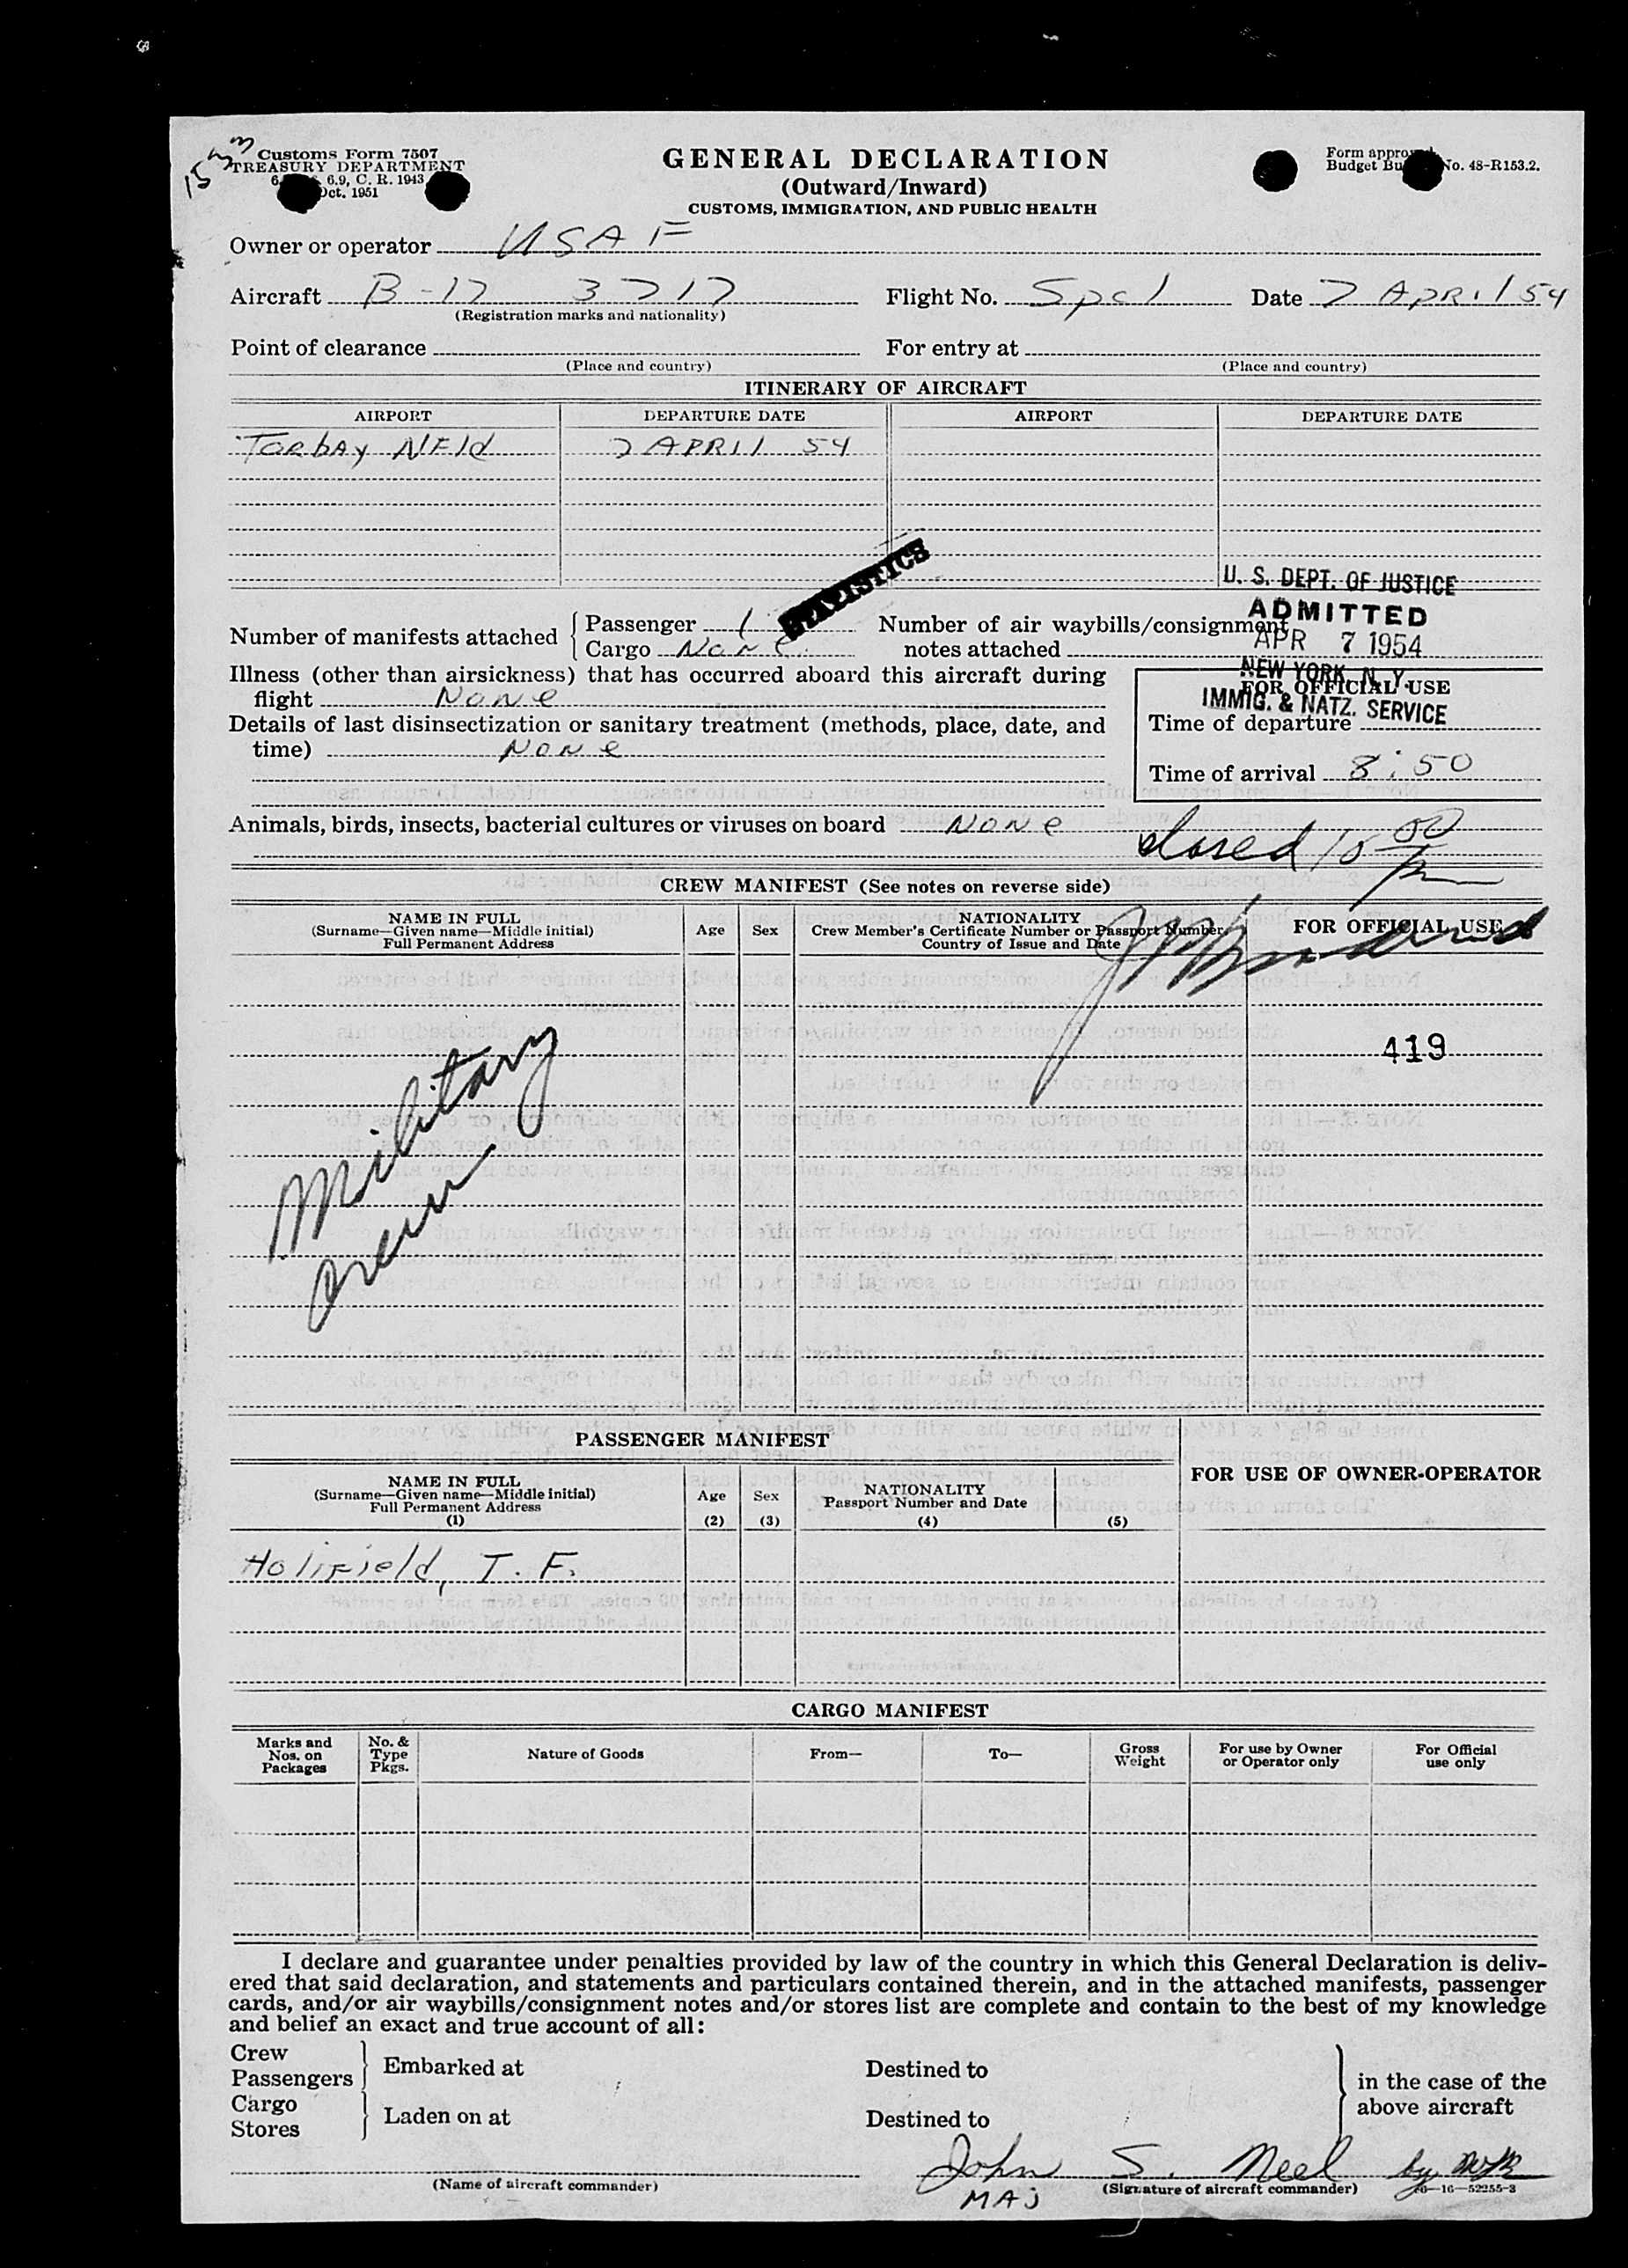 1533
Customs Form 7507
TREASURY DEPARTMENT
6.9, C. R. 1943
Oct. 1951
GENERAL DECLARATION
(Outward/Inward)
CUSTOMS, IMMIGRATION, AND PUBLIC HEALTH
Form approved.
Budget No. 48-R153.2.
Owner or operator USAF
Aircraft B-17 3717 Flight No. Spcl Date 7 APRil 54
(Registration marks and nationality)
Point of clearance For entry at
(Place and country) (Place and country)
ITINERARY OF AIRCRAFT
AIRPORT DEPARTURE DATE AIRPORT DEPARTURE DATE
TORbAY NFld 7 APRIl 54
STATISTICS
U. S. DEPT. OF JUSTICE
ADMITTED
APR 7 1954
NEW YORK, N. Y.
IMMIG. & NATZ. SERVICE
Number of manifests attached
Passenger 1
Cargo None
Number of air waybills/consignment
notes attached
Illness (other than airsickness) that has occurred aboard this aircraft during
flight None
Details of last disinsectization or sanitary treatment (methods, place, date, and
time) None
FOR OFFICIAL USE
Time of departure
Time of arrival 8:50
Animals, birds, insects, bacterial cultures or viruses on board None
closed 10 00
CREW MANIFEST (See notes on reverse side)
NAME IN FULL
(Surname—Given name—Middle initial)
Full Permanent Address
Age Sex
NATIONALITY
Crew Member's Certificate Number or Passport Number
Country of Issue and Date
FOR OFFICIAL USE
419
Military
crew
PASSENGER MANIFEST
NAME IN FULL
(Surname—Given name—Middle initial)
Full Permanent Address
(1)
Age
(2)
Sex
(3)
NATIONALITY
Passport Number and Date
(4) (5)
FOR USE OF OWNER-OPERATOR
Holifield, T. F.
CARGO MANIFEST
Marks and Nos. on Packages
No. & Type Pkgs.
Nature of Goods
From—
To—
Gross Weight
For use by Owner or Operator only
For Official use only
I declare and guarantee under penalties provided by law of the country in which this General Declaration is deliv-
ered that said declaration, and statements and particulars contained therein, and in the attached manifests, passenger
cards, and/or air waybills/consignment notes and/or stores list are complete and contain to the best of my knowledge
and belief an exact and true account of all:
Crew
Passengers
Embarked at Destined to
Cargo
Stores
Laden on at Destined to
in the case of the
above aircraft
John S. Neel by
(Name of aircraft commander) (Signature of aircraft commander) 16—52255-3
MAJ